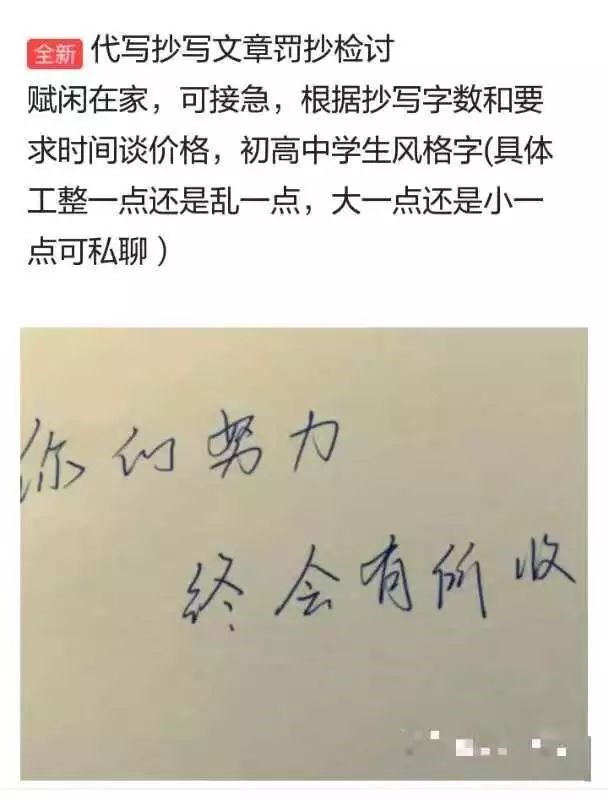 全新 代写抄写文章罚抄检讨
赋闲在家，可接急，根据抄写字数和要
求时间谈价格，初高中学生风格字(具体
工整一点还是乱一点，大一点还是小一
点可私聊）
你们努力
终会有所收